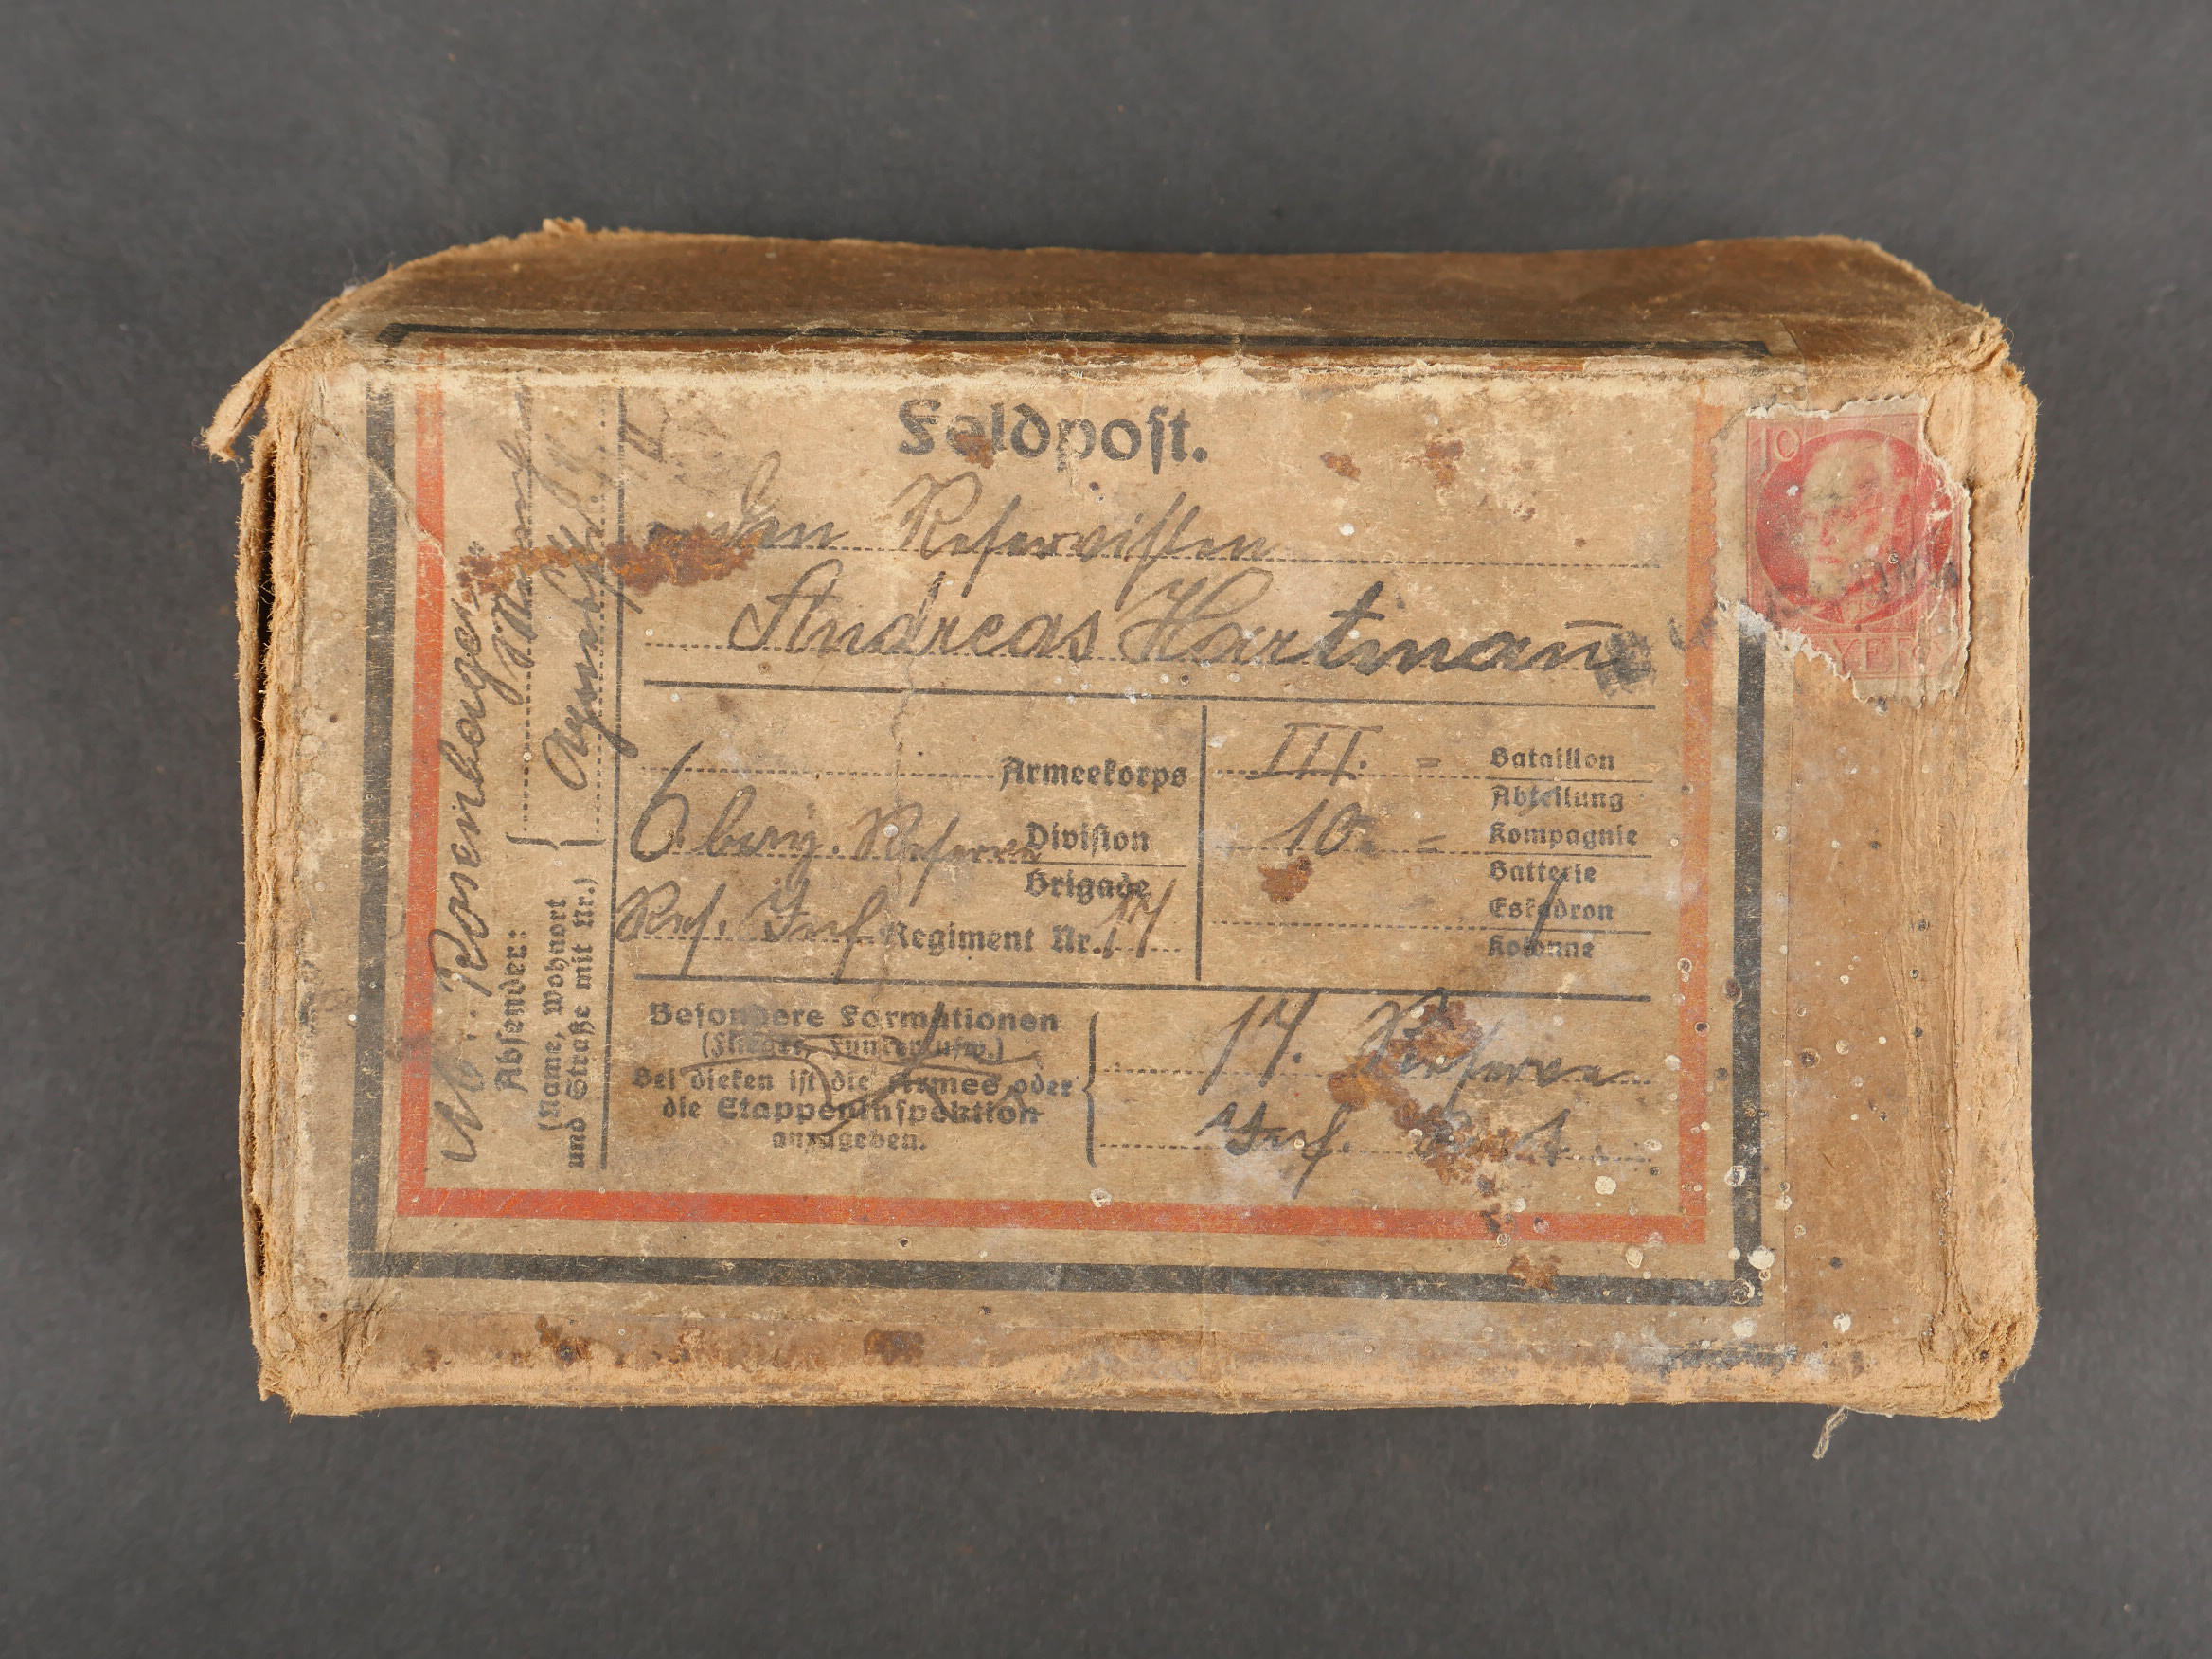 Feldpost.
den Reservisten
Andreas Hartmann
Armeekorps
6. bay. Reserve Division
Brigade
Res. Inf. Regiment Nr. 17
III. = Bataillon
Abteilung
10. = Kompagnie
Batterie
Eskadron
Kolonne
Besondere Formationen
(Flieger, Funker usw.)
Bei diesen ist die Armee oder
die Etappeninspektion
anzugeben.
17. Reserve
Inf. Regt.
Absender:
(Name, Wohnort
und Straße mit Nr.)
10
BAYERN